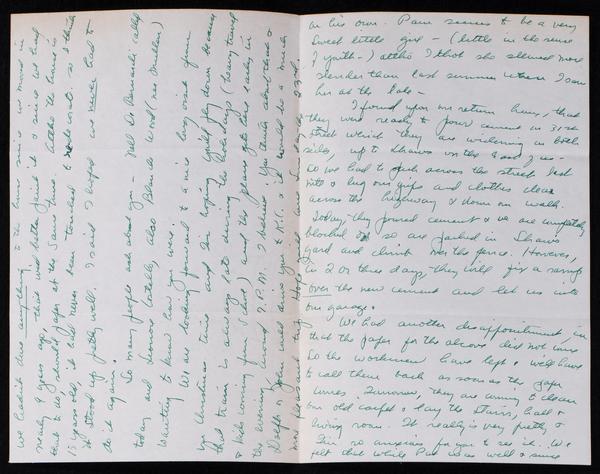 we hadn't done anything to the house since we moved in
nearly 9 years ago, that we'd better paint it & since we had
that to do, should paper at the same time. Altho the house is
15 years old, it had never been touched to redecorate. So I think
it stood up pretty well. I said I hoped we never had to
do it again.
So many people ask about you - Nell De Bernardi, called
today and lately, also Blanche Wood (nee Mullen)
wanting to know how you were.
We are looking forward to a nice long visit from
you Christmas time and I'm hoping you'll fly down because
that train is always late during the holidays (heavy travel
& kids coming from school) and the plane gets here early in
the evening around 7 P.M. I believe. You think about that &
John will drive you to K.C. & it would be a much
more pleasant trip. Hope
on his own. Pam seems to be a very
sweet little girl - (little in the sense
of youth -) altho I that she seemed more
slender than last summer when I saw
her at the lake -
I found upon our return here, that
they were ready to pour cement on 31st
street which they are widening on both
sides, up to Shaws on the & us -
So we had to park across the street last
nite & lug our grips and clothes clear
across the highway & down our walk.
Today they poured cement & we are completely
blocked so are parked in Shaws
yard and climb over the fence. However,
in 2 or three days, they will fix a ramp
over the new cement and let us into
our garage.
We had another disappointment, in
that the paper for the alcove did not come
So the workmen have left & we'll have
to call them back as soon as the paper
comes. Tomorrow, they are coming to clean
our old carpet & lay the stairs, hall &
living room. It really is very pretty &
I'm so anxious for you to see it. We
felt that while Pat was so well & since